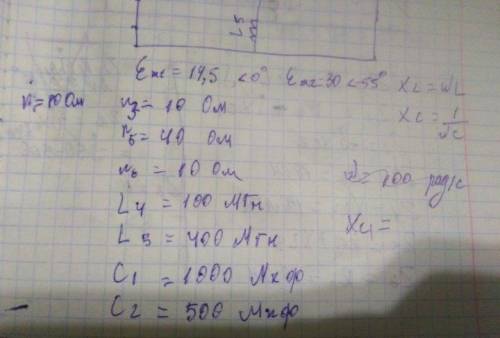 L5
Em1 = 14,5 <0° Em2=30 <55° XL=WL
r1=10 Ом r3= 10 Ом XC = 1/Wc
r5= 40 Ом
r6 = 10 Ом W=100 рад/с
L4 = 100 Мгн
L5 = 400 Мгн X4=
C1 = 1000 Мкф
C2 = 500 Мкф